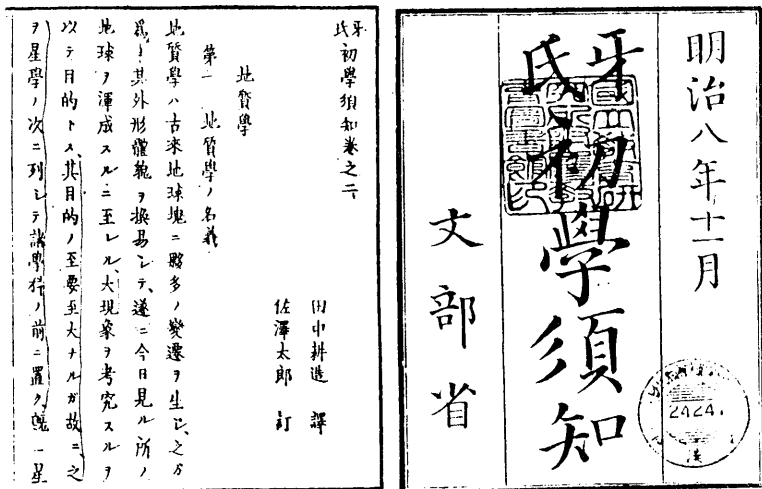 明治八年十一月
牙氏初學須知
文部省
2424
牙氏初學須知卷之二
田中耕造 譯
佐澤太郎 訂
地質學
第一 地質學ノ名義
地質學ハ古來地球塊ニ夥多ノ變遷ヲ生シ、之カ
爲ト其外形體貌ヲ換易シテ、遂ニ今日見ル所ノ
地球ヲ渾成スルニ至レル、大現象ヲ考究スルヲ
以テ目的トス、其目的ノ至要至大ナルガ故ニ、之
ヲ星學ノ次ニ列シテ諸學科ノ前ニ置ク、 一星